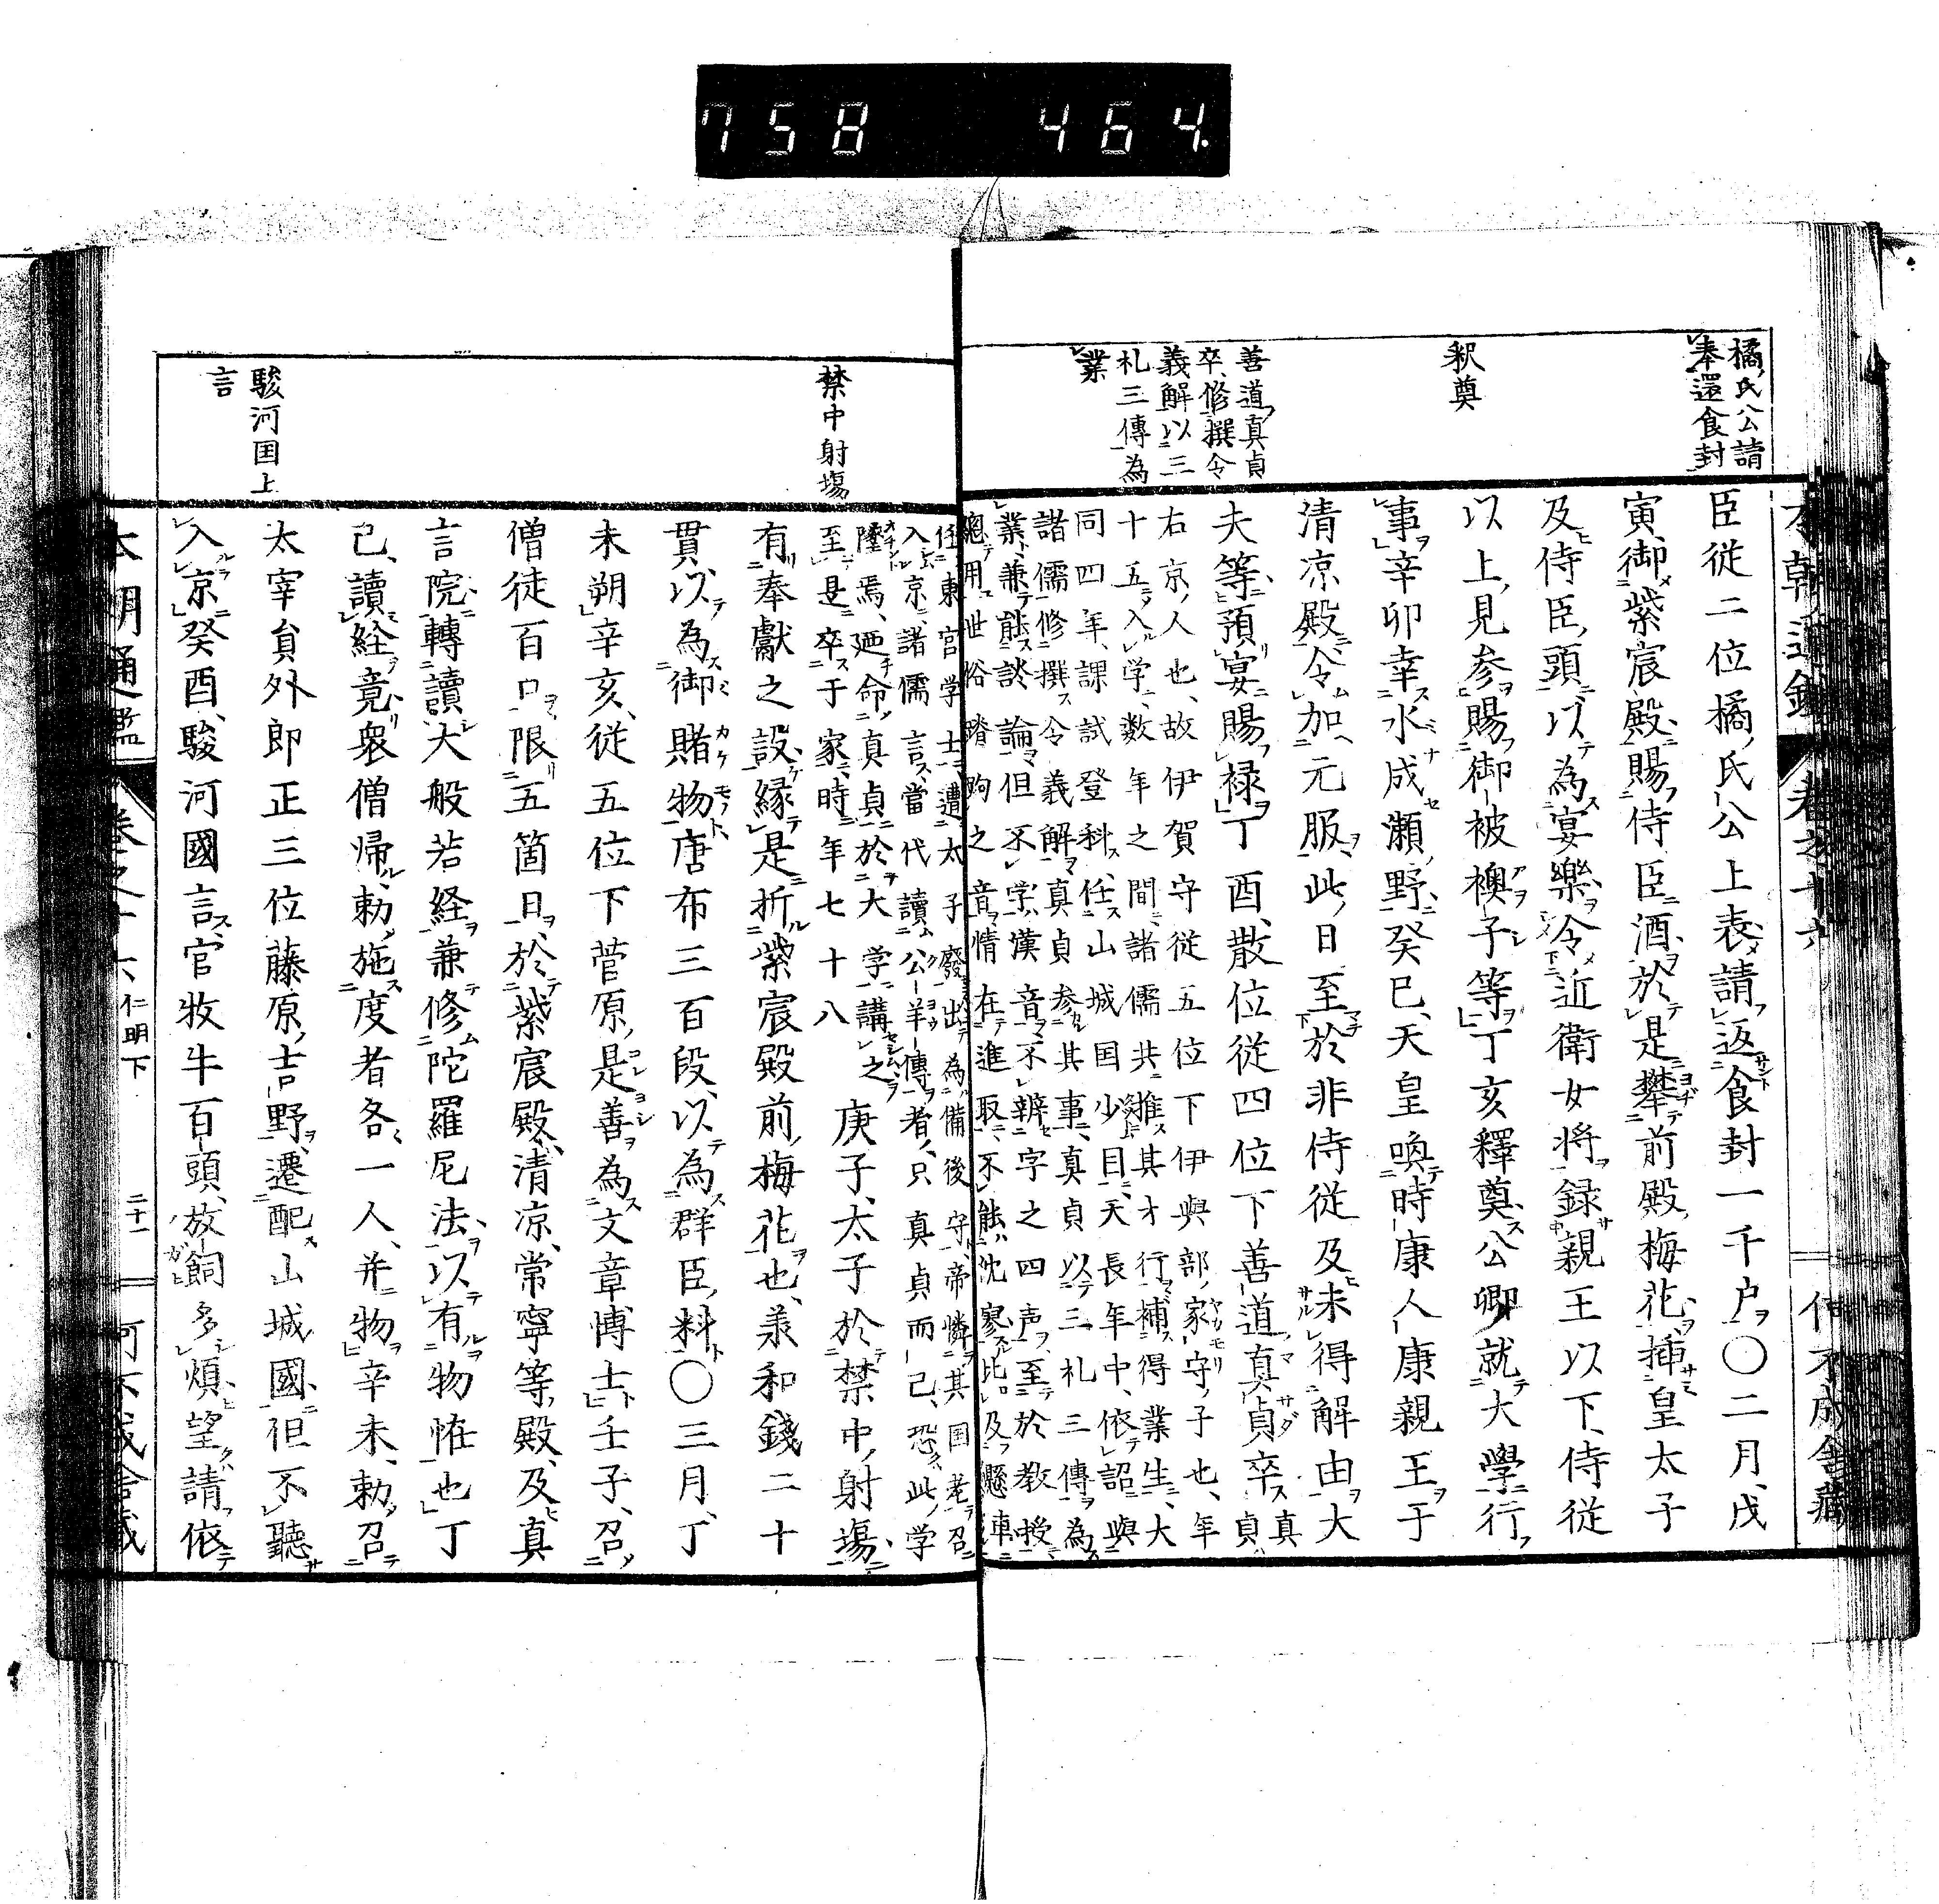 758 464.
橘氏公請
奉還食封
釈奠
善道真貞
卒修撰令
義解以三
礼三傳為
業
本朝通鑑 卷之十六 伺不成舎藏
臣從二位橘氏公上表請返食封一千户〇二月戊
寅御紫宸殿賜侍臣酒於是攀前殿梅花挿皇太子
及侍臣頭以為宴樂令近衛女将録親王以下侍從
以上見参賜御被襖子等丁亥釋奠公卿就大學行
事辛卯幸水成瀬野癸巳天皇喚時康人康親王于
清凉殿令加元服此日至於非侍從及未得解由大
夫等預宴賜禄丁酉散位從四位下善道真貞卒真貞
右京人也故伊賀守從五位下伊與部家守子也年
十五入学數年之間諸儒共推其才行補得業生大
同四年課試登科任山城国少目天長年中依詔與
諸儒修撰令義解真貞参其事真貞以三礼三傳為
業兼能談論但不学漢音不辨字之四声至於教授
總用世俗踳駒之音情在進取不能沈寥比及懸車
任東宮学士遭太子廢出為備後守帝憐其国老召
入京諸儒言當代讀公羊傳者只真貞而已恐此学
墜焉廼命真貞於大学講之
至是卒于家時年七十八 庚子太子於禁中射場
有奉獻之設縁是折紫宸殿前梅花也羕和錢二十
貫以為御賭物唐布三百段以為群臣料〇三月丁
未朔辛亥從五位下菅原是善為文章博士壬子召
僧徒百口限五箇日於紫宸殿清凉常寧等殿及真
言院轉讀大般若経兼修陀羅尼法以有物恠也丁
已讀経竟衆僧帰勅施度者各一人并物辛未勅召
太宰貟外郎正三位藤原吉野遷配山城國但不聽
入京癸酉駿河國言官牧牛百頭放飼多煩望請依
禁中射場
駿河国上
言
本朝通鑑 卷之十六 仁明下 二十一 伺不成舎藏